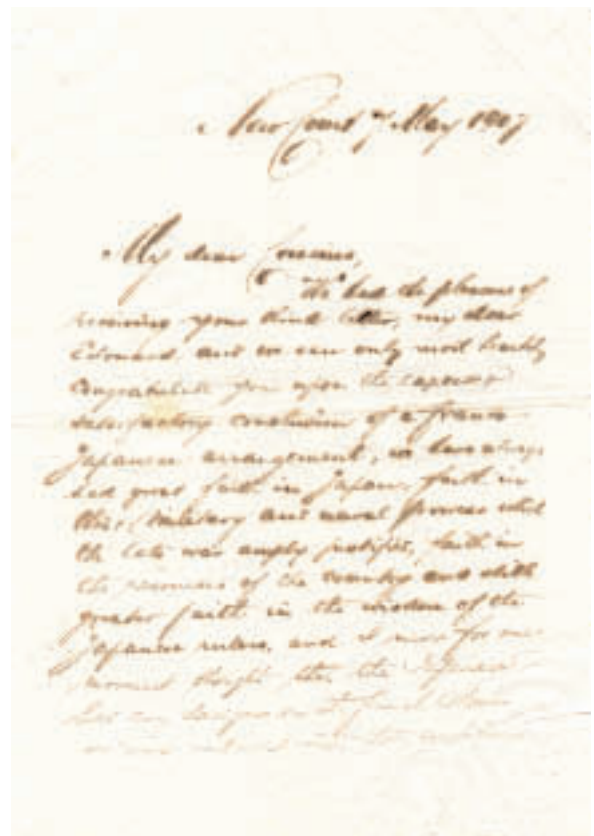 New Court 7 May 1907
My dear Cousins,
We had the pleasure of
receiving your kind letter, my dear
Edouard and we can only most heartily
congratulate you upon the
satisfactory conclusion of a Franco
Japanese arrangement, we have always
had great faith in Japan, faith in
their military and naval prowess which
the late war amply justified, faith in
the resources of the country and still
greater faith in the wisdom of the
Japanese rulers, and I never for one
moment thought that the Japanese
had any